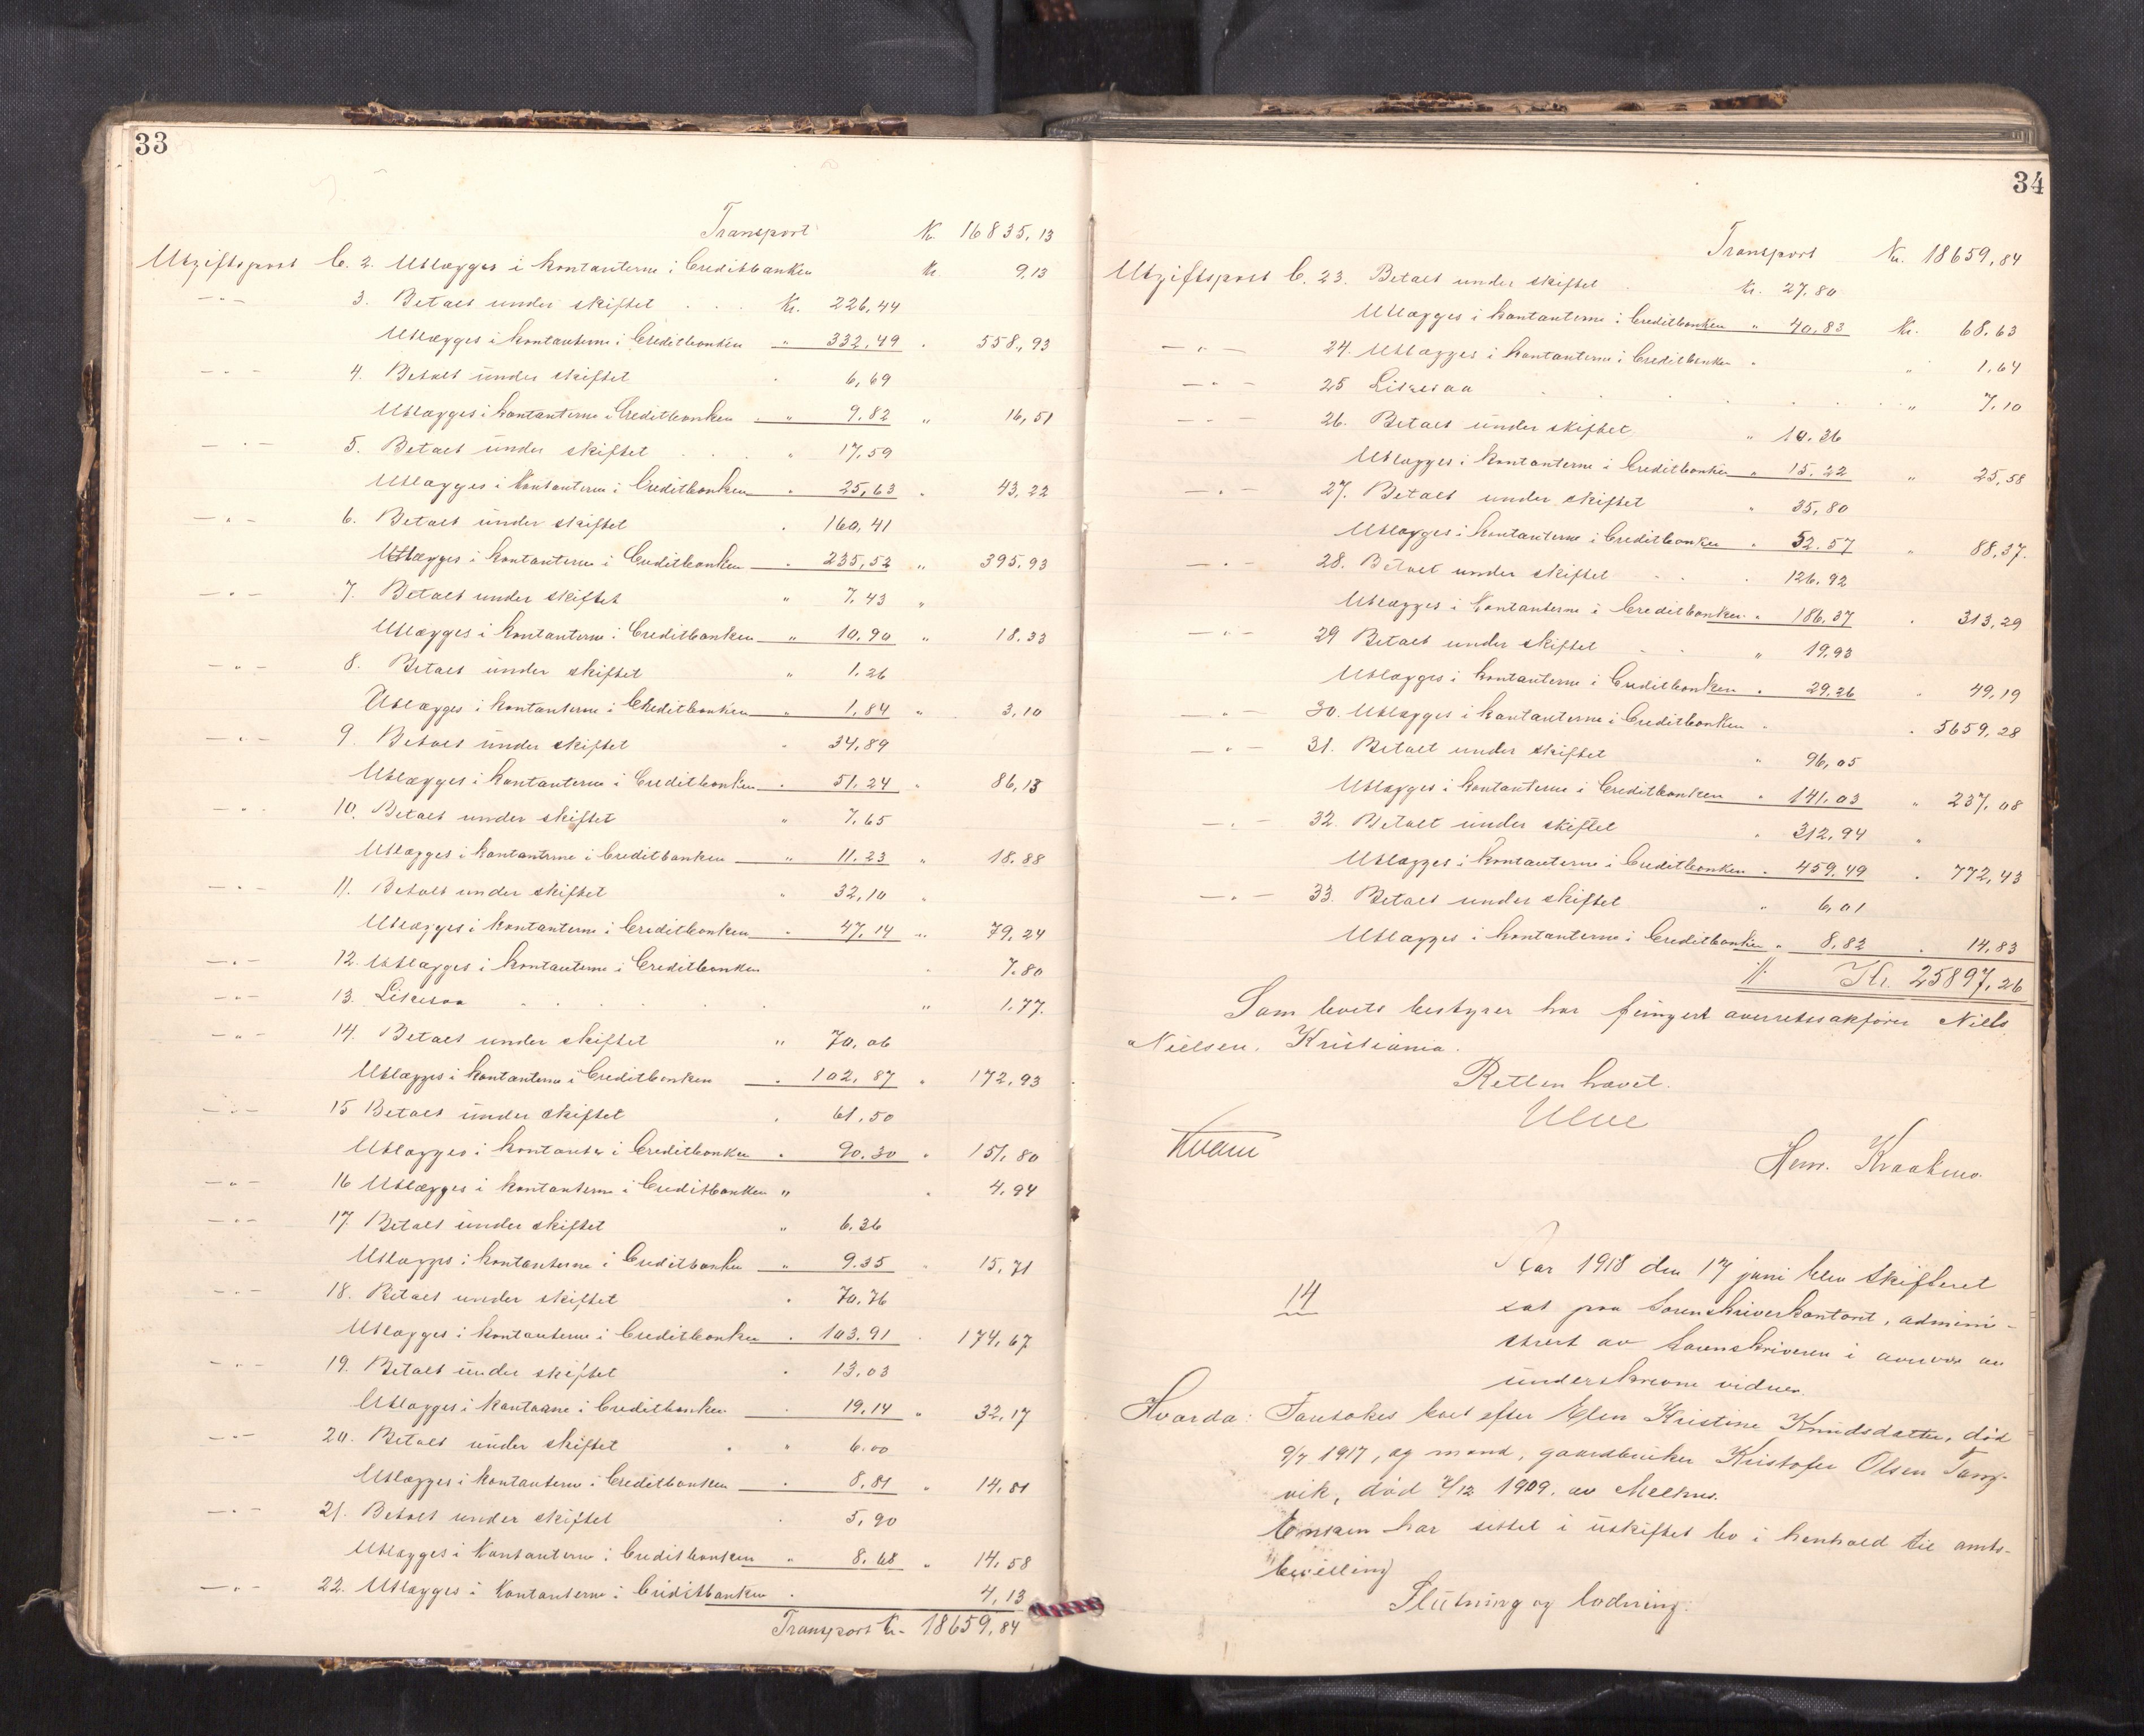 33
Transport Kr. 16835,13
Utgiftspost C. 2. Utlægges i kontanterne i Creditbanken Kr. 9,13
—"— 3. Betalt under skiftet . . . Kr. 226,44
Utlægges i kontanterne i Creditbanken " 332,49 " 558,93
—"— 4. Betalt under skiftet " 6,69
Utlægges i kontanterne i Creditbanken " 9.82 " 16,51
—"— 5. Betalt under skiftet . . . " 17.59
Utlægges i kontanterne i Creditbanken " 25,63 " 43,22
—"— 6. Betalt under skiftet " 160,41
Utlægges i kontanterne i Creditbanken " 235,52 " 395.93
—"— 7. Betalt under skiftet " 7,43 "
Utlægges i kontanterne i Creditbanken " 10.90 " 18.33
—"— 8. Betalt under skiftet " 1.26
Utlægges i kontanterne i Creditbanken " 1,84 " 3,10
—"— 9. Betalt under skiftet " 34,89
Utlægges i kontanterne i Creditbanken " 51,24 " 86,13
—"— 10. Betalt under skiftet " 7,65
Utlægges i kontanterne i Creditbanken " 11.23 " 18.88
—"— 11. Betalt under skiftet " 32,10 "
Utlægges i kontanterne i Creditbanken " 47,14 " 79,24
—"— 12. Utlægges i kontanterne i Creditbanken " 7.80
—"— 13. Likesaa . . . . " 1.77.
—"— 14. Betalt under skiftet " 70,06
Utlægges i kontanterne i Creditbanken " 102,87 " 172,93
—"— 15 Betalt under skiftet " 61,50
Utlægges i kontanter i Creditbanken " 90.30 " 151,80
—"— 16 Utlægges i kontanterne i Creditbanken " " 4,94
—"— 17. Betalt under skiftet " 6.36
Utlægges i kontanterne i Creditbanken " 9.35 " 15,71
—"— 18. Betalt under skiftet " 70,76
Utlægges i kontanterne i Creditbanken " 103.91 " 174,67
—"— 19. Betalt under skiftet " 13,03
Utlægges i kontanne i Creditbanken " 19,14 " 32,17
—"— 20. Betalt under skiftet " 6.00
Utlægges i kontanterne i Creditbanken " 8,81 " 14,81
—"— 21. Betalt under skiftet " 5,90
Utlægges i kontanterne i Creditbanken " 8.68 " 14,58
—"— 22. Utlægges i kontanterne i Creditbanken " 4,13
Transport Kr. 18659,84
34
Transport Kr. 18659,84
Utgiftspost C. 23. Betalt under skiftet Kr. 27,80
Utlægges i kontanterne i Creditbanken " 40,83 Kr. 68.63
—"— 24. Utlægges i kontanterne i Creditbanken " " 1,64
—"— 25 Likesaa . . . . " 7,10
—"— 26. Betalt under skiftet " 10.36
Utlægges i kontanterne i Creditbanken " 15,22 " 25,58
—"— 27. Betalt under skiftet " 35,80
Utlægges i kontanterne i Creditbanken " 52.57 " 88,37.
—"— 28. Betalt under skiftet . . . 126,92
Utlægges i kontanterne i Creditbanken " 186,37 " 313,29
—"— 29 Betalt under skiftet . . " 19.93
Utlægges i kontanterne i Creditbanken " 29,26 " 49,19
—"— 30. Utlægges i kontanterne i Creditbanken " " 5659,28
—"— 31. Betalt under skiftet " 96,05
Utlægges i kontanterne i Creditbanken " 141,03 " 237,08
—"— 32. Betalt under skiftet " 312,94 "
Utlægges i kontanterne i Creditbanken " 459,49 " 772,43
—"— 33. Betalt under skiftet " 6,01
Utlægges i kontanterne i Creditbanken " 8,82 " 14,83
Kr. 25897,26
Som boets bestyrer har fungert overretssakfører Niels
Nielsen, Kristiania.
Retten hævet.
Ulve
Kvam
Hem. Kraakmo.
Aar 1918 den 17 juni blev skifteret
14
sat paa sorenskriverkontoret, admini-
strert av sorenskriveren i overvær av
underskrevne vidner.
Hvorda: Foretokes boet efter Elen Kristine Knudsdatter, død
9/7 1917, og mand, gaardbruker Kristofer Olsen Tang-
vik, død /12 1909, av Melhus.
Enken har sittet i uskiftet bo i henhold til amts-
bevilling
Slutning og lodning: